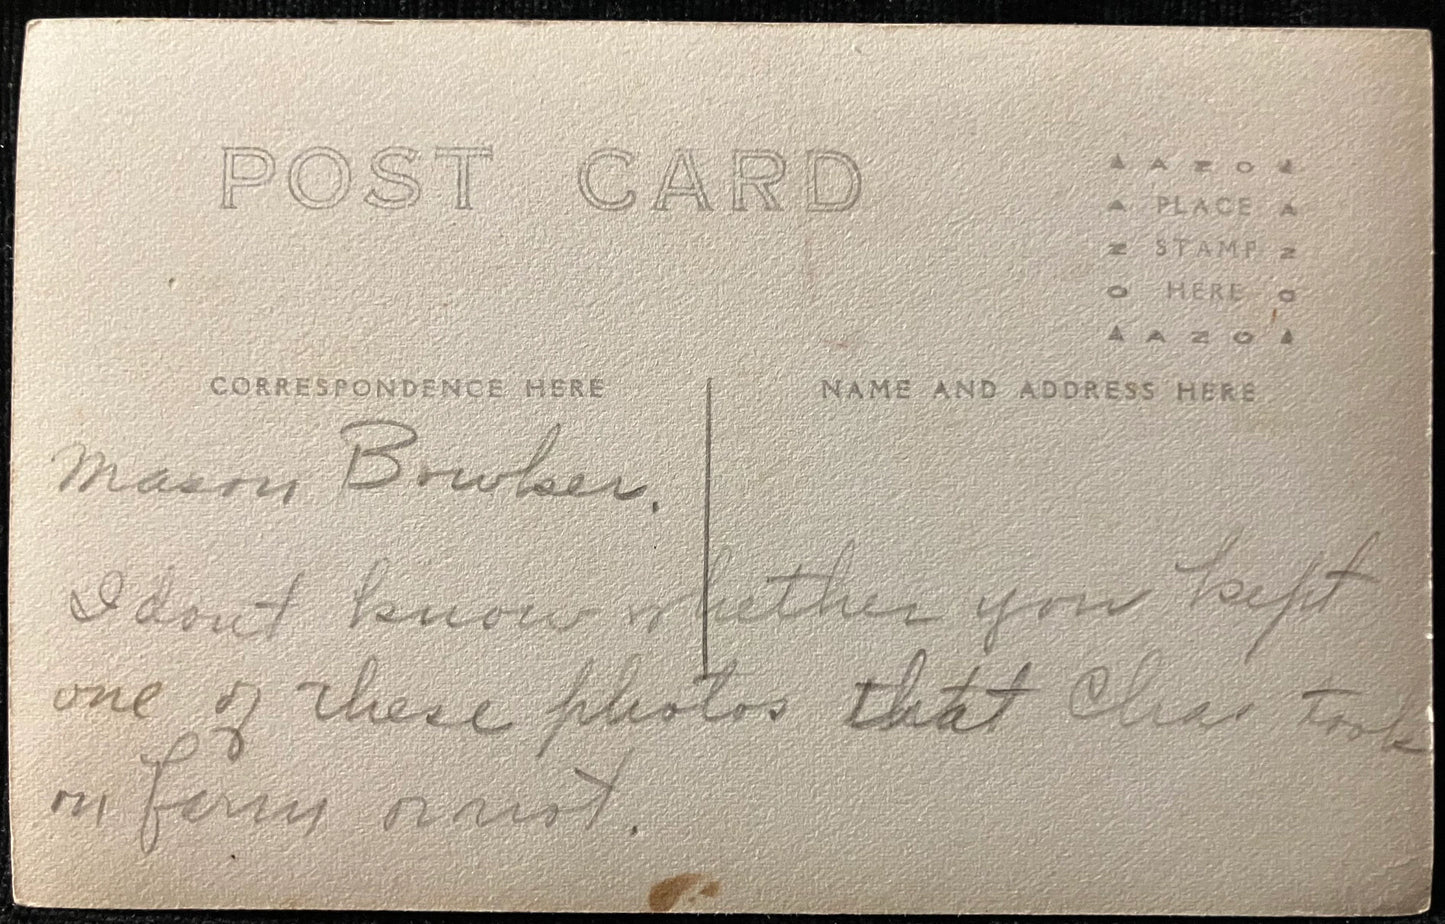 POST CARD
▲ A Z O ▲
A PLACE A
Z STAMP Z
O HERE O
▲ A Z O ▲
CORRESPONDENCE HERE
NAME AND ADDRESS HERE
Mason Bowker.
I dont know whether you kept
one of these photos that Chas took
on farm or not.